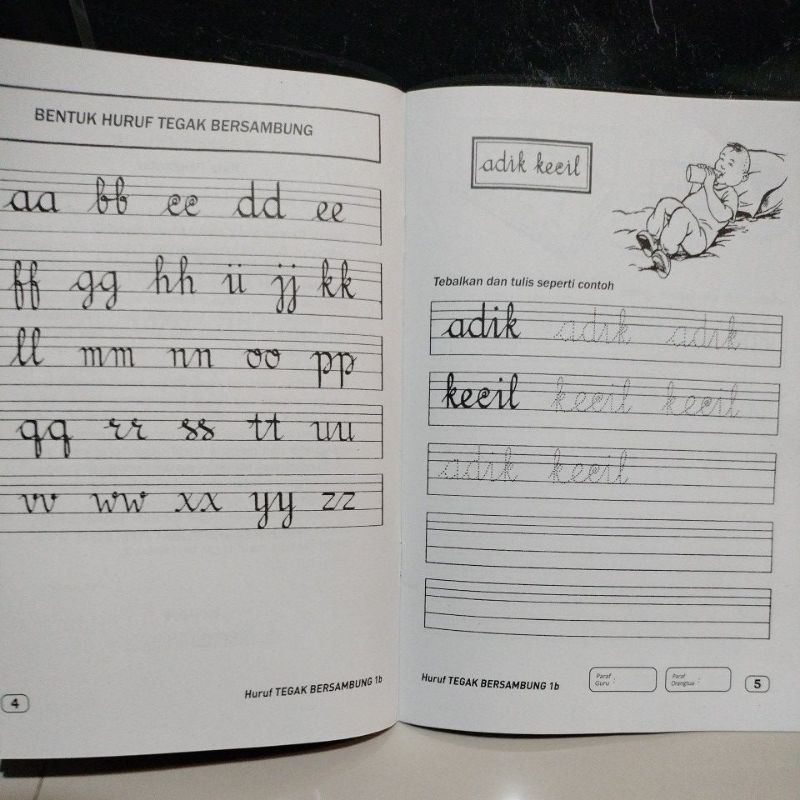 BENTUK HURUF TEGAK BERSAMBUNG
aa bb cc dd ee
ff gg hh ii jj kk
ll mm nn oo pp
qq rr ss tt uu
vv ww xx yy zz
4
Huruf TEGAK BERSAMBUNG 1b
adik kecil
Tebalkan dan tulis seperti contoh
adik adik adik
kecil kecil kecil
adik kecil
Huruf TEGAK BERSAMBUNG 1b
Paraf Guru :
Paraf Orangtua :
5